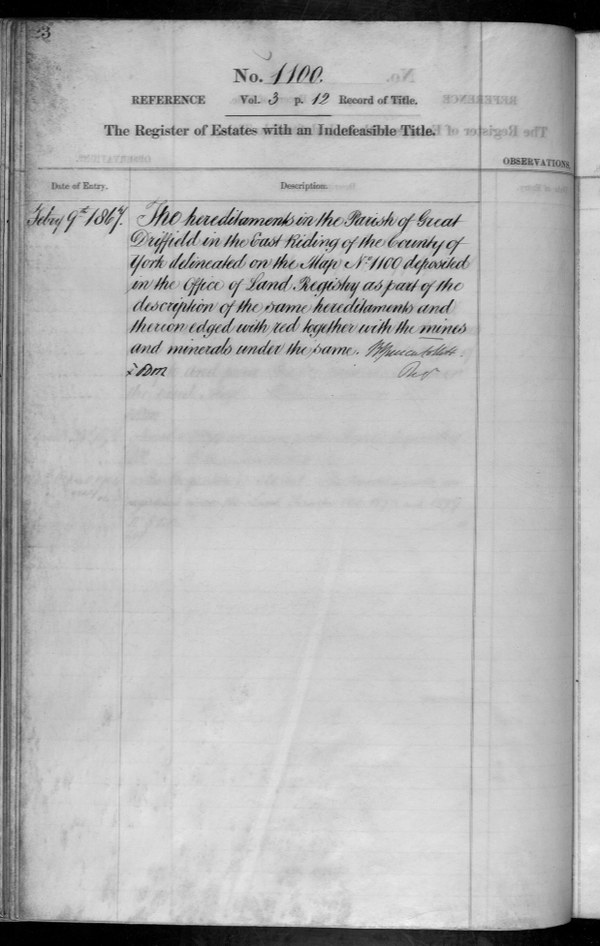 No. 1100.
REFERENCE Vol. 3 p. 12 Record of Title.
The Register of Estates with an Indefeasible Title.
OBSERVATIONS.
Date of Entry. Description.
Feby 9th 1867. The hereditaments in the Parish of Great
Driffield in the East Riding of the County of
York delineated on the Map No. 1100 deposited
in the Office of Land Registry as part of the
description of the same hereditaments and
thereon edged with red together with the mines
and minerals under the same.
Regr